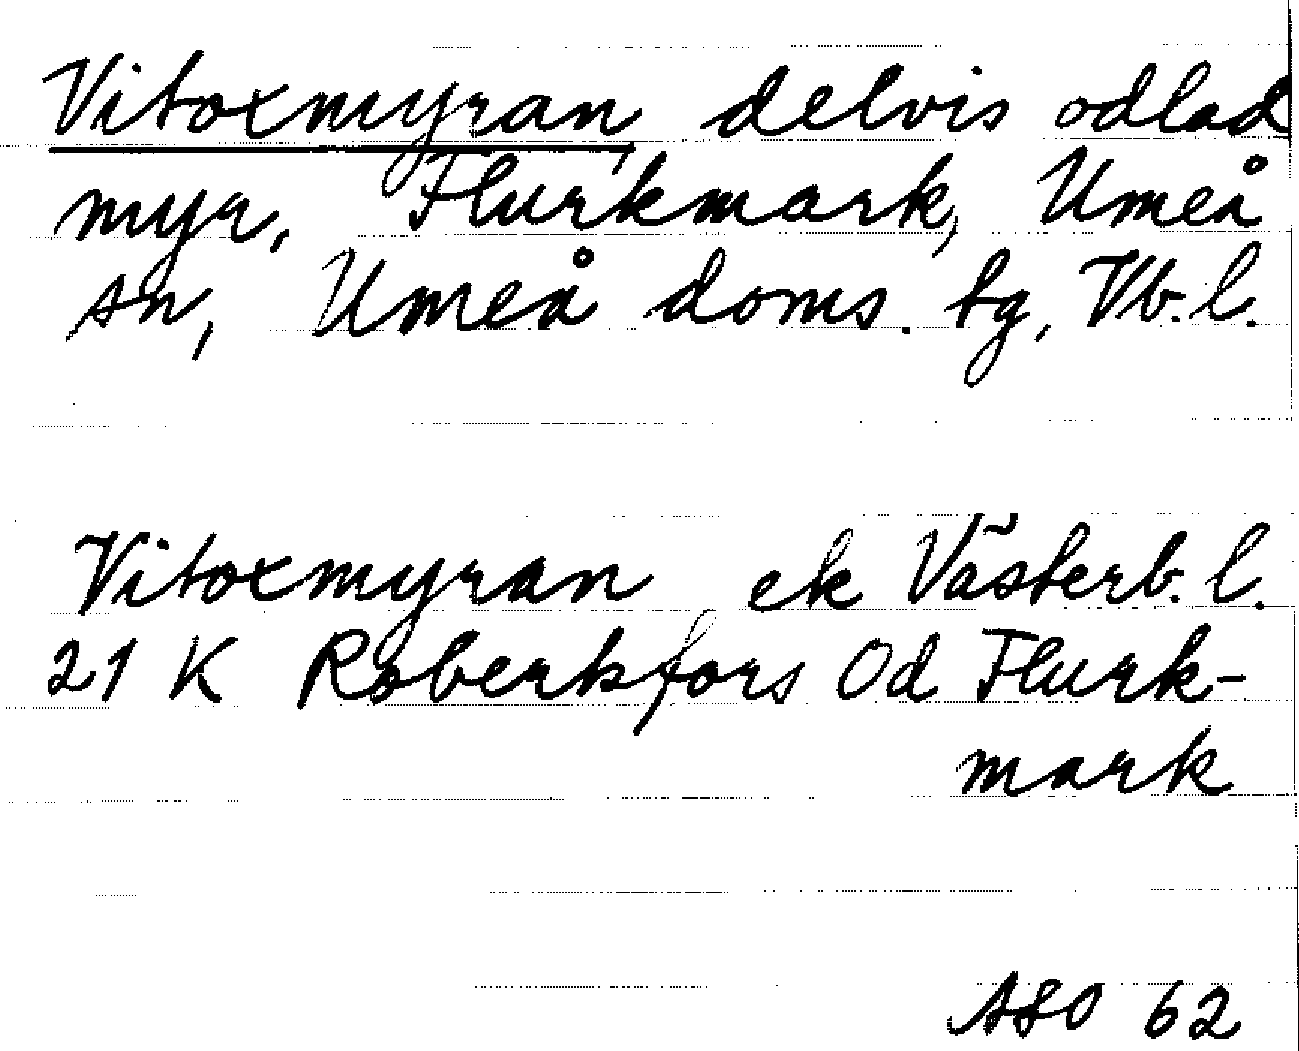 Vitoxmyran, delvis odlad
myr, Flurkmark, Umeå
sn, Umeå doms. tg, Vb. l.
Vitoxmyran ek Västerb. l.
21 K Robertsfors 0d Flurk-
mark
ASO 62